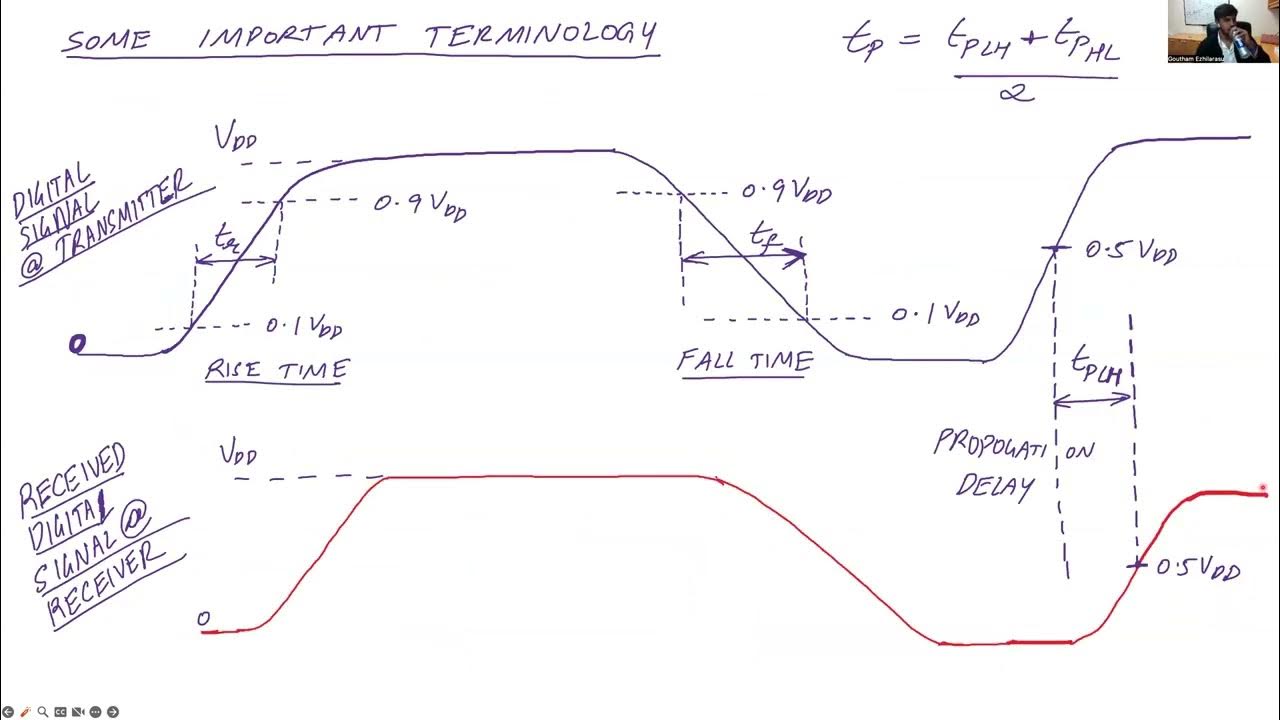 SOME IMPORTANT TERMINOLOGY
tP = tPLH + tPHL
2
Goutham Ezhilarasu
DIGITAL
SIGNAL
@ TRANSMITTER
VDD
0.9 VDD
tr
0.1 VDD
0
RISE TIME
0.9 VDD
tf
0.1 VDD
FALL TIME
0.5 VDD
tPLH
PROPOGATION
DELAY
RECEIVED
DIGITAL
SIGNAL @
RECEIVER
VDD
0
0.5 VDD
CC